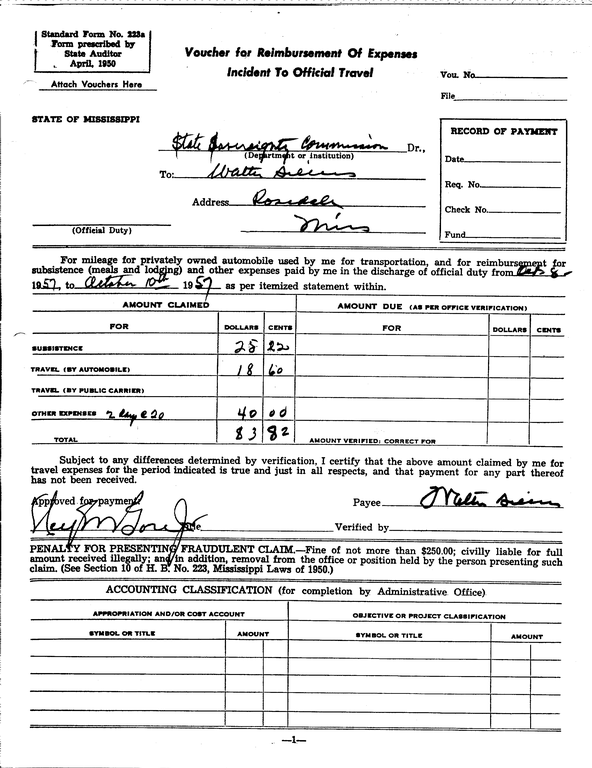 Standard Form No. 223a
Form prescribed by
State Auditor
April, 1950
Attach Vouchers Here
Voucher for Reimbursement Of Expenses
Incident To Official Travel
Vou. No.
File
STATE OF MISSISSIPPI
State Sovereignty Commission Dr.,
(Department or institution)
To: Walter Sillers
Address Rosedale
Miss
(Official Duty)
RECORD OF PAYMENT
Date
Req. No.
Check No.
Fund
For mileage for privately owned automobile used by me for transportation, and for reimbursement for
subsistence (meals and lodging) and other expenses paid by me in the discharge of official duty from Oct 8
1957, to October 10th 1957 as per itemized statement within.
AMOUNT CLAIMED
AMOUNT DUE (AS PER OFFICE VERIFICATION)
FOR DOLLARS CENTS FOR DOLLARS CENTS
SUBSISTENCE 25 22
TRAVEL (BY AUTOMOBILE) 18 60
TRAVEL (BY PUBLIC CARRIER)
OTHER EXPENSES 2 days @ 20 40 00
TOTAL 83 82 AMOUNT VERIFIED: CORRECT FOR
Subject to any differences determined by verification, I certify that the above amount claimed by me for
travel expenses for the period indicated is true and just in all respects, and that payment for any part thereof
has not been received.
Approved for payment
Payee Walter Sillers
Verified by
PENALTY FOR PRESENTING FRAUDULENT CLAIM.—Fine of not more than $250.00; civilly liable for full
amount received illegally; and in addition, removal from the office or position held by the person presenting such
claim. (See Section 10 of H. B. No. 223, Mississippi Laws of 1950.)
ACCOUNTING CLASSIFICATION (for completion by Administrative Office)
APPROPRIATION AND/OR COST ACCOUNT
OBJECTIVE OR PROJECT CLASSIFICATION
SYMBOL OR TITLE AMOUNT SYMBOL OR TITLE AMOUNT
—1—